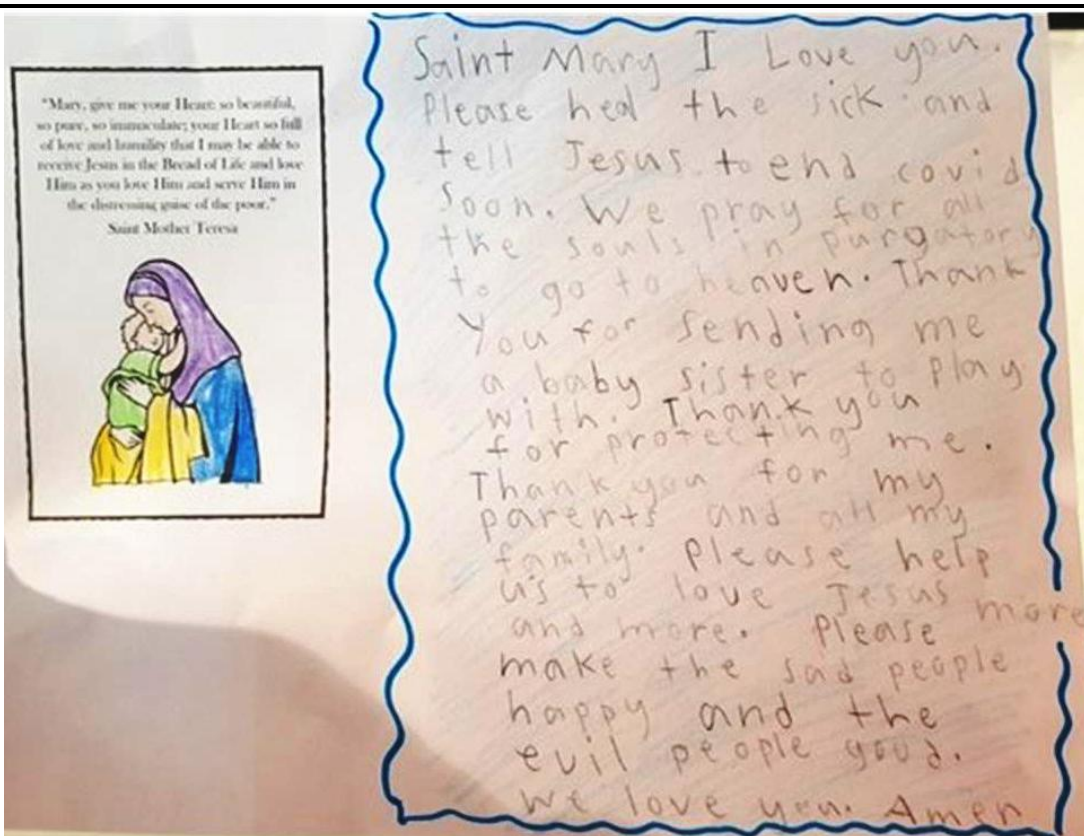 "Mary, give me your Heart: so beautiful,
so pure, so immaculate; your Heart so full
of love and humility that I may be able to
receive Jesus in the Bread of Life and love
Him as you love Him and serve Him in
the distressing guise of the poor."
Saint Mother Teresa
Saint Mary I Love you.
Please heal the sick and
tell Jesus to end covid
Soon. We pray for all
the souls in purgatory
to go to heaven. Thank
You for sending me
a baby sister to play
with. Thank you
for protecting me.
Thank you for my
parents and all my
family. Please help
us to love Jesus more
and more. Please
make the sad people
happy and the
evil people good.
We love you. Amen